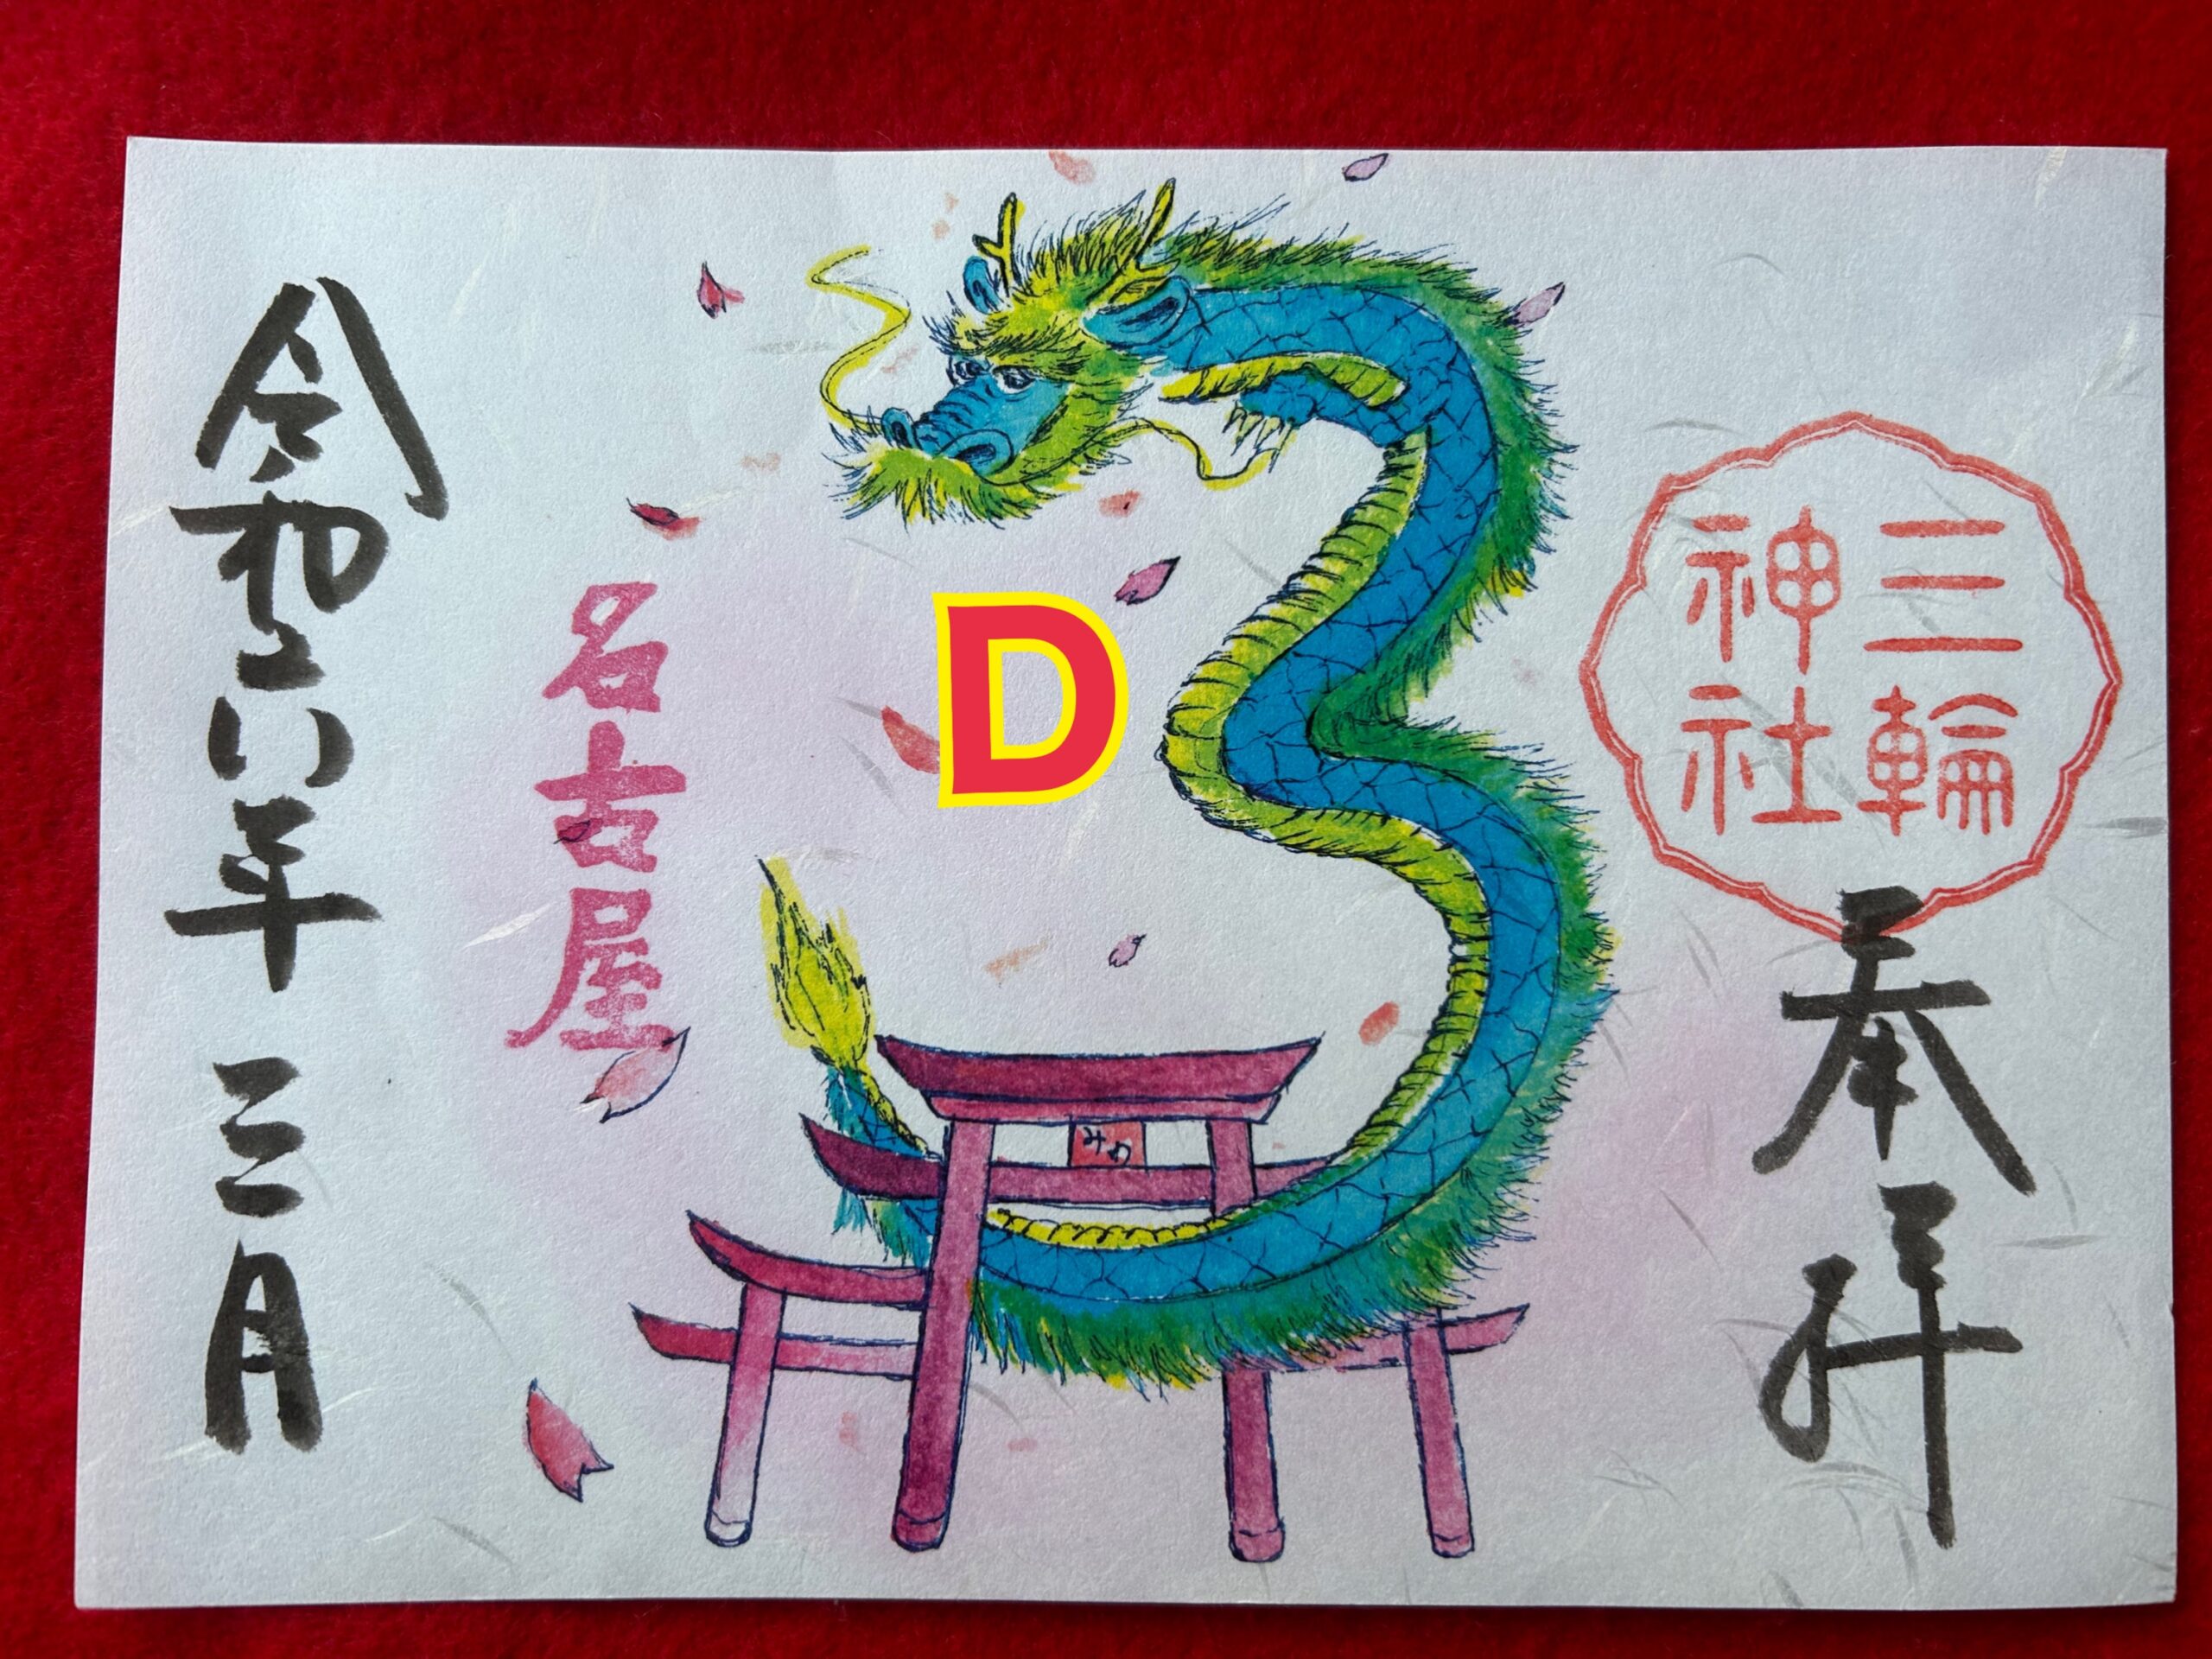 三輪
神社
奉拝
D
みわ
名古屋
令和六年 三月